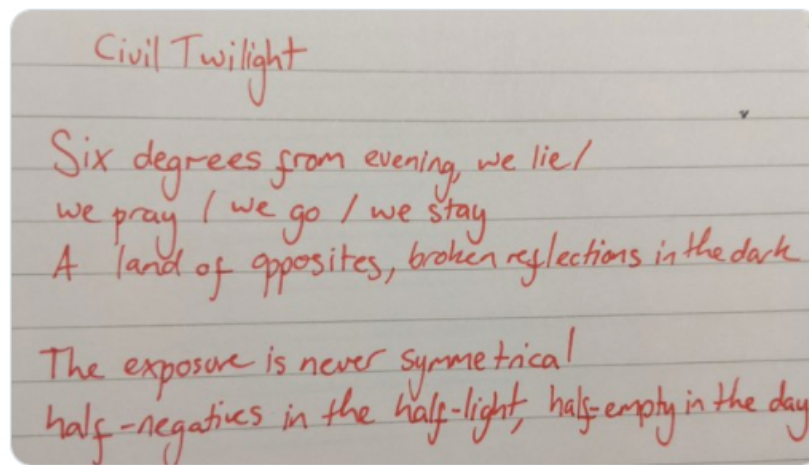 Civil Twilight
Six degrees from evening, we lie/
we pray / we go / we stay
A land of opposites, broken reflections in the dark
The exposure is never symmetrical
half-negatives in the half-light, half-empty in the day